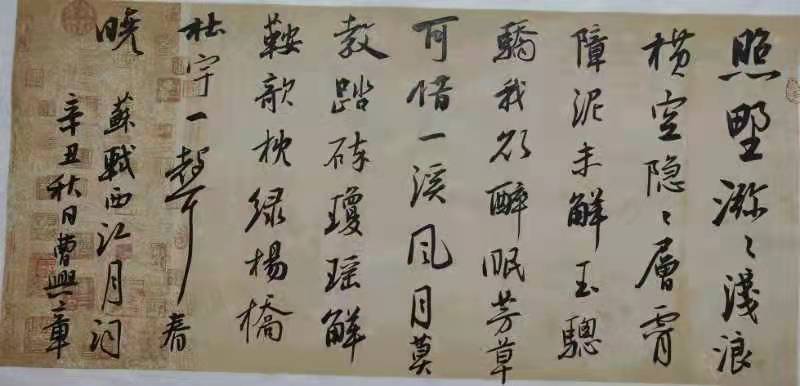 照野瀰〻淺浪
橫空隐〻層霄
障泥未解玉驄
驕我欲醉眠芳草
可惜一溪風月莫
教踏碎瓊瑶解
鞍欹枕绿楊橋
杜宇一聲春
曉 蘇軾西江月词
辛丑秋日曹興章